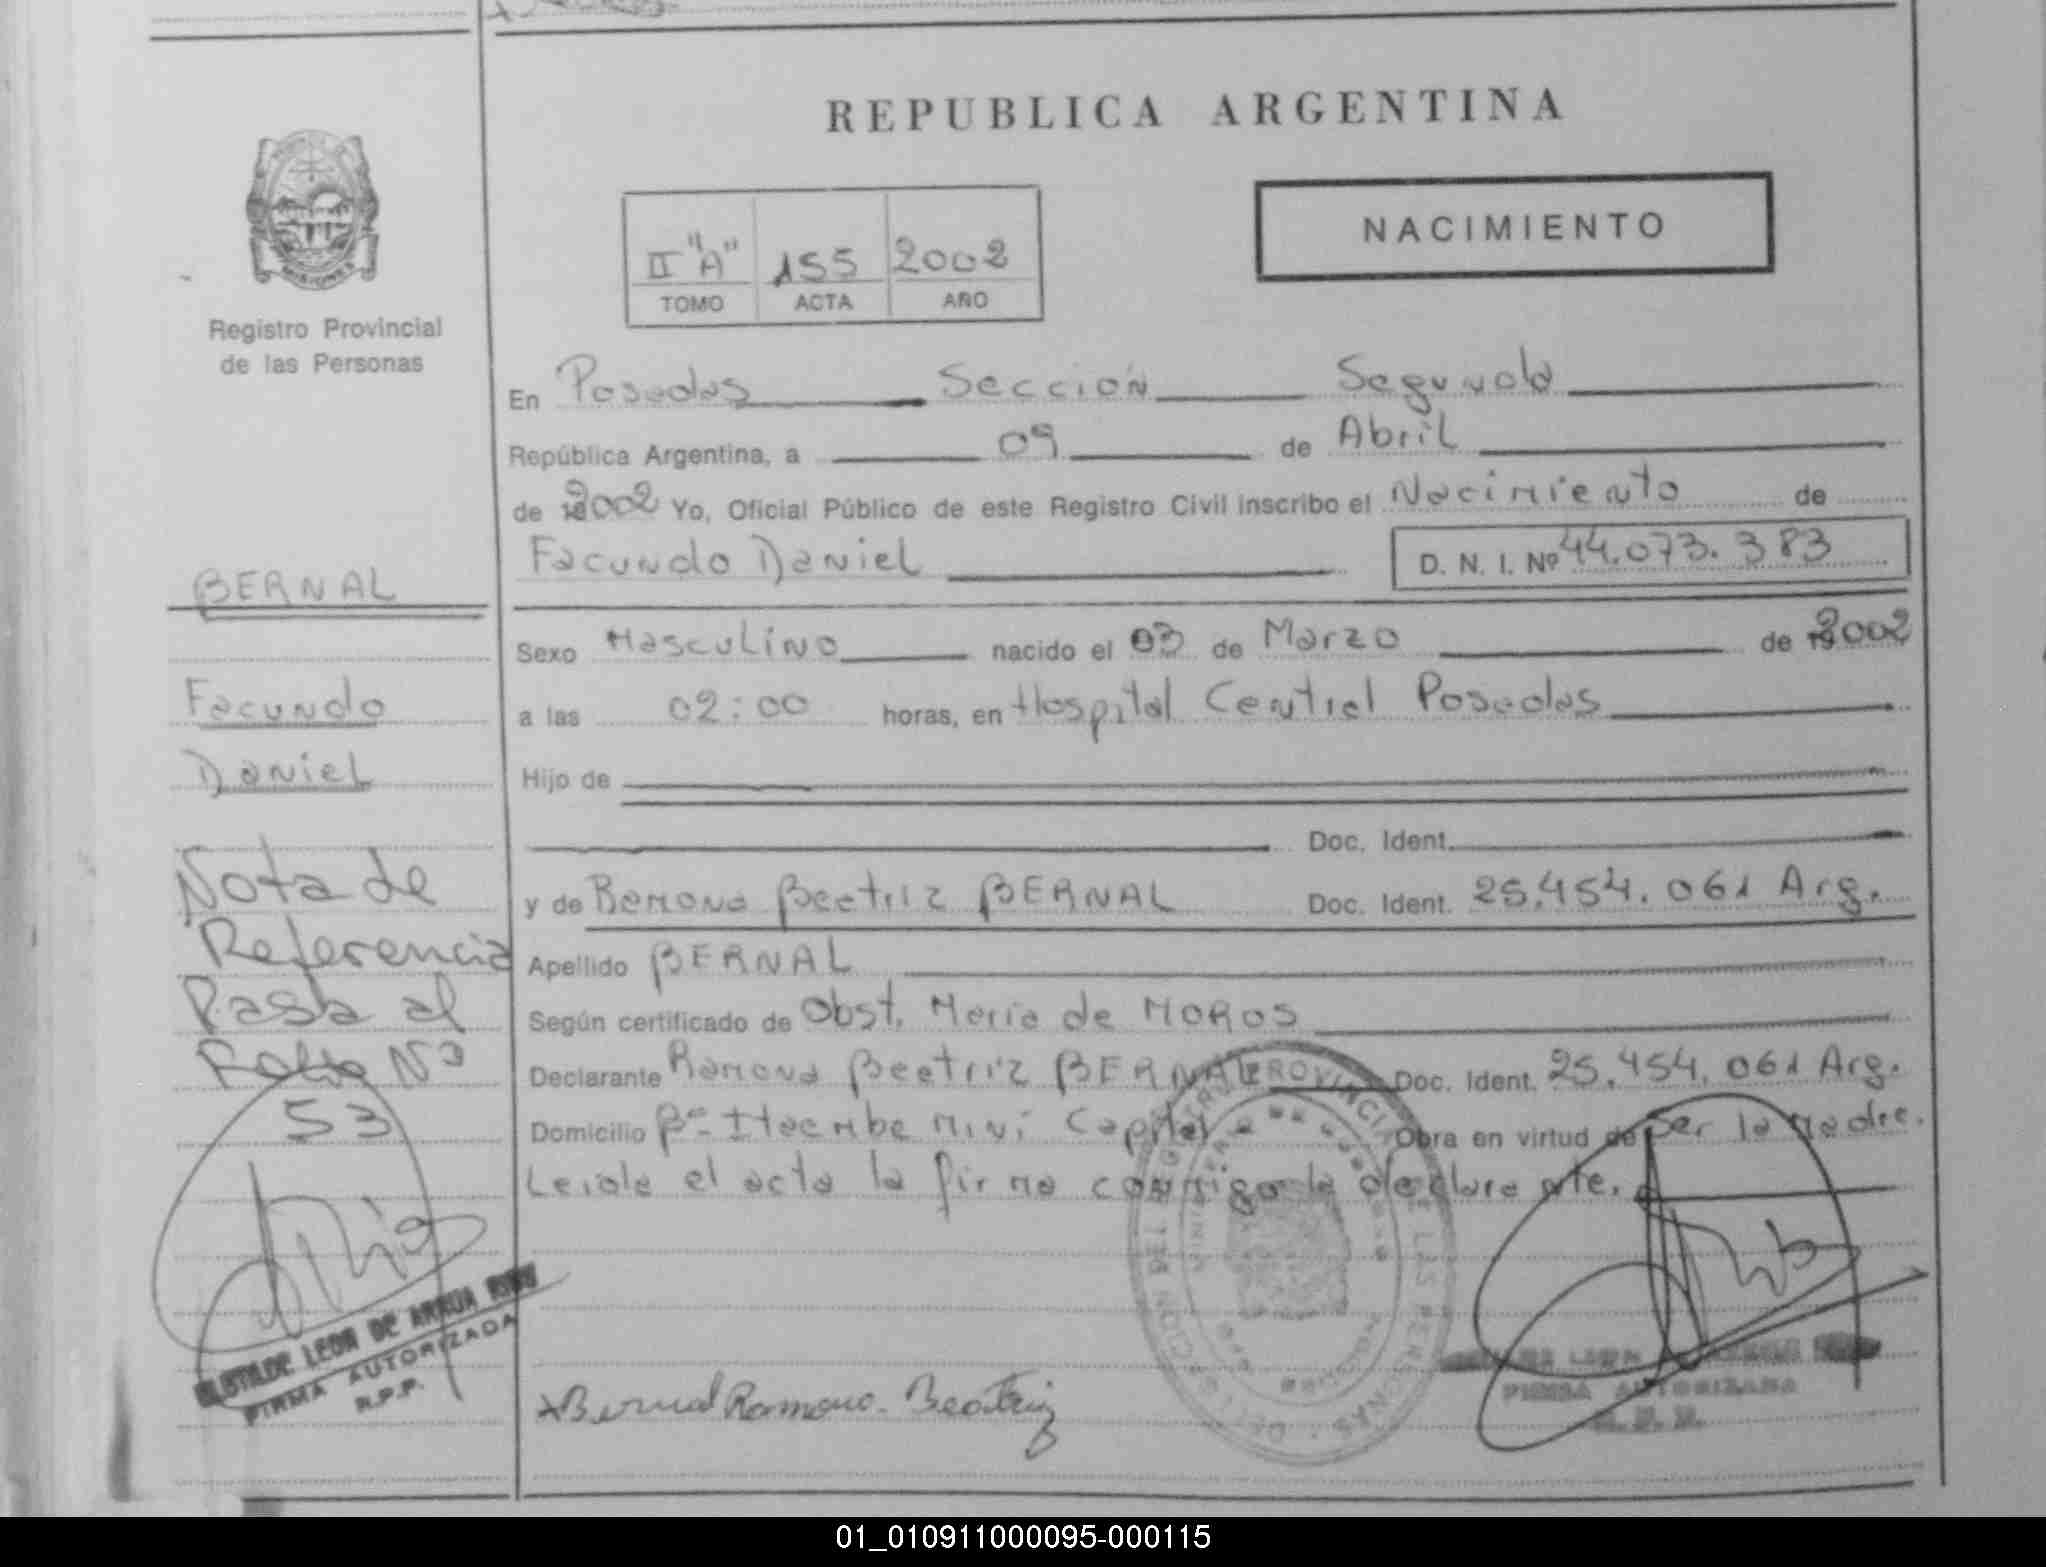 REPUBLICA ARGENTINA
MISIONES
Registro Provincial
de las Personas
NACIMIENTO
II "A" 155 2002
TOMO ACTA AÑO
En Posadas Sección Segunda
República Argentina, a 09 de Abril
de 2002 Yo, Oficial Público de este Registro Civil inscribo el Nacimiento de
Facundo Daniel D. N. I. Nº 44.073.383
BERNAL
Facundo
Daniel
Sexo Masculino nacido el 03 de Marzo de 2002
a las 02:00 horas, en Hospital Central Posadas
Hijo de
Doc. Ident.
y de Ramona Beatriz BERNAL Doc. Ident. 25.454.061 Arg.
Apellido BERNAL
Según certificado de Obst. Maria de MOROS
Declarante Ramona Beatriz BERNAL Doc. Ident. 25.454.061 Arg.
Domicilio Bº Itaembe mini Capital Obra en virtud de Ser la Madre.
Leida el acta la firma conmigo la declarante.
Nota de
Referencia
Pasa al
Folio Nº
53
LEON DE
FIRMA AUTORIZADA
R.P.P.
Bernal Ramona Beatriz
FIRMA AUTORIZADA
01_010911000095-000115